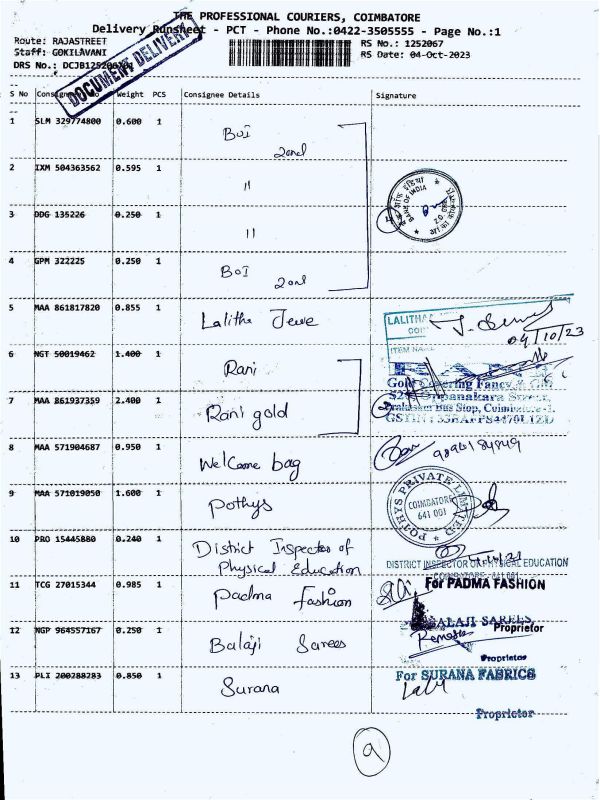 THE PROFESSIONAL COURIERS, COIMBATORE
Delivery Runsheet - PCT - Phone No.:0422-3505555 - Page No.:1
Route: RAJASTREET
RS No.: 1252067
Staff: GOKILAVANI
RS Date: 04-Oct-2023
DRS No.:
DOCUMENT DELIVERY
S No Weight PCS Consignee Details Signature
1 SLM 329774800 0.600 1 BOI
2nd
2 IXM 504363562 0.595 1 "
3 DDG 135226 0.250 1 "
BANK OF INDIA
4 GPM 322225 0.250 1 BOI
2nd
5 MAA 861817820 0.855 1 Lalitha Jewe
LALITHA
04/10/23
ITEM NAME
6 NGT 50019462 1.400 1 Rani
Gold Covering Fancy &
7 MAA 861937359 2.400 1 Rani gold
Bus Stop, Coimbatore-1.
8 MAA 571904687 0.950 1 Welcome bag
9 MAA 571019050 1.600 1 Pothys
POTHYS PRIVATE LIMITED
COIMBATORE
641 001
10 PRO 15445880 0.240 1 District Inspector of
Physical Education
DISTRICT INSPECTOR OF PHYSICAL EDUCATION
COIMBATORE - 641 001
11 TCG 27015344 0.985 1 Padma Fashion
For PADMA FASHION
Proprietor
12 NGP 964557167 0.250 1 Balaji Sarees
BALAJI SAREES
Proprietor
13 PLI 200288283 0.850 1 Surana
For SURANA FABRICS
Proprietor
9